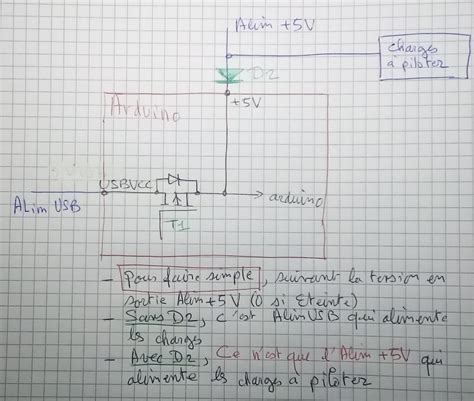 Alim +5V
charges
à piloter
D2
+5V
Arduino
USBVCC
arduino
ALim USB
T1
- Pour faire simple, suivant la tension en
sortie Alim +5V (0 si Eteinte)
- Sans D2, c'est Alim USB qui alimente
les charges
- Avec D2, Ce n'est que l'Alim +5V qui
alimente les charges à piloter